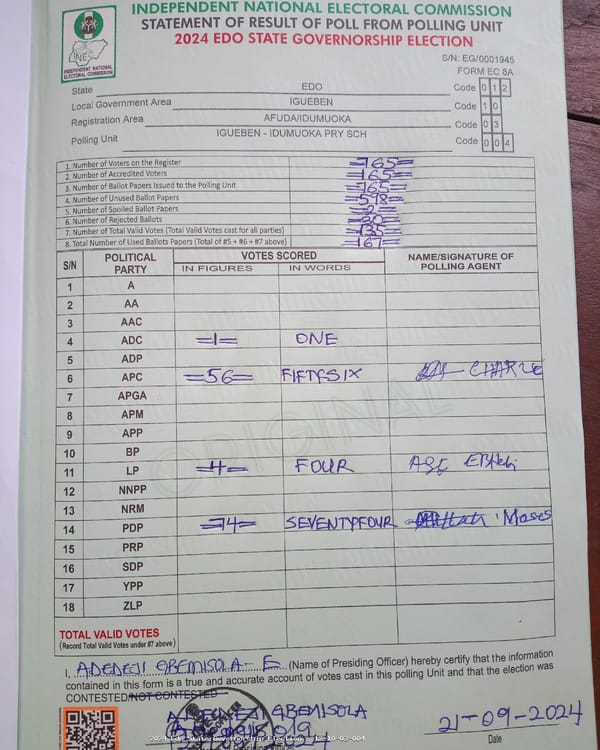 INDEPENDENT NATIONAL ELECTORAL COMMISSION
STATEMENT OF RESULT OF POLL FROM POLLING UNIT
2024 EDO STATE GOVERNORSHIP ELECTION
INEC
INDEPENDENT NATIONAL ELECTORAL COMMISSION
S/N: EG/0001945
FORM EC 8A
State EDO Code 0 1 2
Local Government Area IGUEBEN Code 1 0
Registration Area AFUDA/IDUMUOKA Code 0 3
Polling Unit IGUEBEN - IDUMUOKA PRY SCH Code 0 0 4
1. Number of Voters on the Register =765=
2. Number of Accredited Voters =165=
3. Number of Ballot Papers Issued to the Polling Unit =765=
4. Number of Unused Ballot Papers =598=
5. Number of Spoiled Ballot Papers =2=
6. Number of Rejected Ballots =30=
7. Number of Total Valid Votes (Total Valid Votes cast for all parties) =135=
8. Total Number of Used Ballots Papers (Total of #5 + #6 + #7 above) =167=
S/N POLITICAL PARTY VOTES SCORED NAME/SIGNATURE OF POLLING AGENT
IN FIGURES IN WORDS
1 A
2 AA
3 AAC
4 ADC =1= ONE
5 ADP
6 APC =56= FIFTYSIX CHARLE
7 APGA
8 APM
9 APP
10 BP
11 LP =4= FOUR
12 NNPP
13 NRM
14 PDP =74= SEVENTYFOUR Moses
15 PRP
16 SDP
17 YPP
18 ZLP
ORIGINAL
TOTAL VALID VOTES
(Record Total Valid Votes under #7 above)
I, ADEDEJI GBEMISOLA - E (Name of Presiding Officer) hereby certify that the information
contained in this form is a true and accurate account of votes cast in this polling Unit and that the election was
CONTESTED/NOT CONTESTED
ADEDEJI GBEMISOLA
21-09-2024
Date